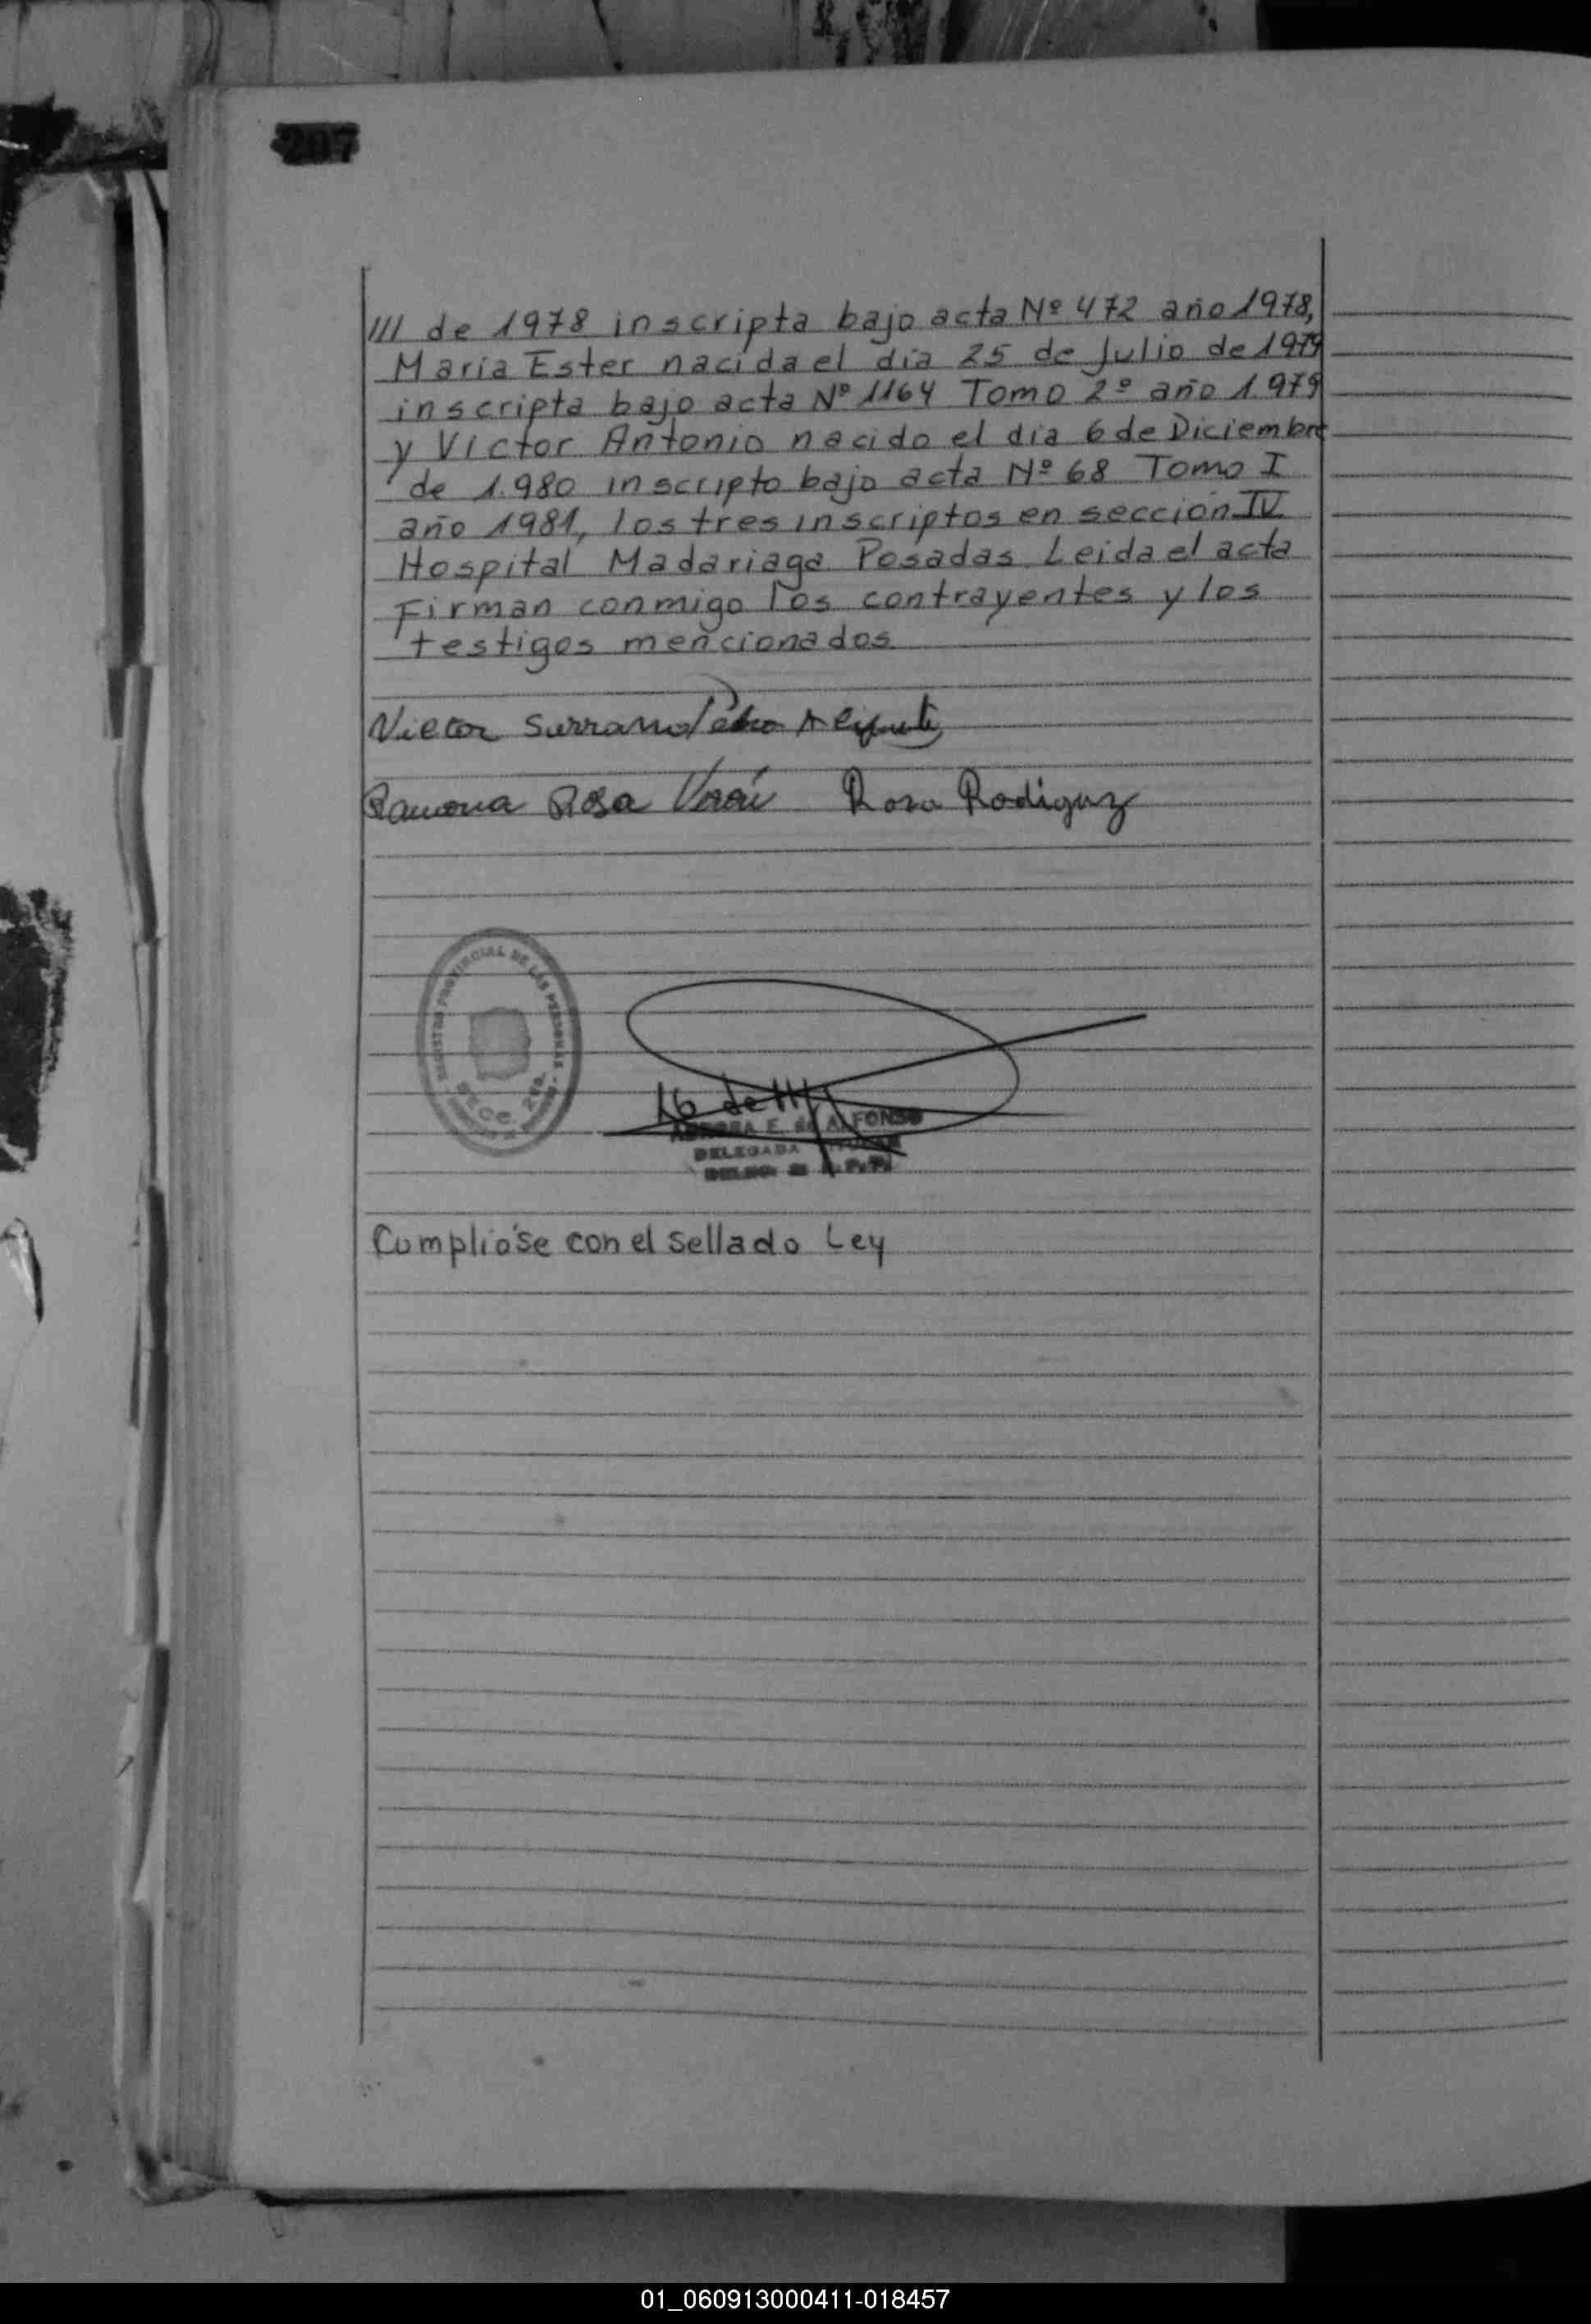 207
/// de 1978 inscripta bajo acta Nº 472 año 1978,
Maria Ester nacida el dia 25 de Julio de 1979
inscripta bajo acta Nº 1164 Tomo 2º año 1.979
y Victor Antonio nacido el dia 6 de Diciembre
de 1.980 inscripto bajo acta Nº 68 Tomo I
año 1981, los tres inscriptos en sección IV
Hospital Madariaga Posadas. Leida el acta
Firman conmigo los contrayentes y los
testigos mencionados
Victor Serrano Pedro
Ramona Rosa Rosa Rodiguez
REGISTRO PROVINCIAL DE LAS PERSONAS
16 de
E. de ALFONSO
DELEGADA TITULAR
Cumplióse con el sellado Ley
01_060913000411-018457